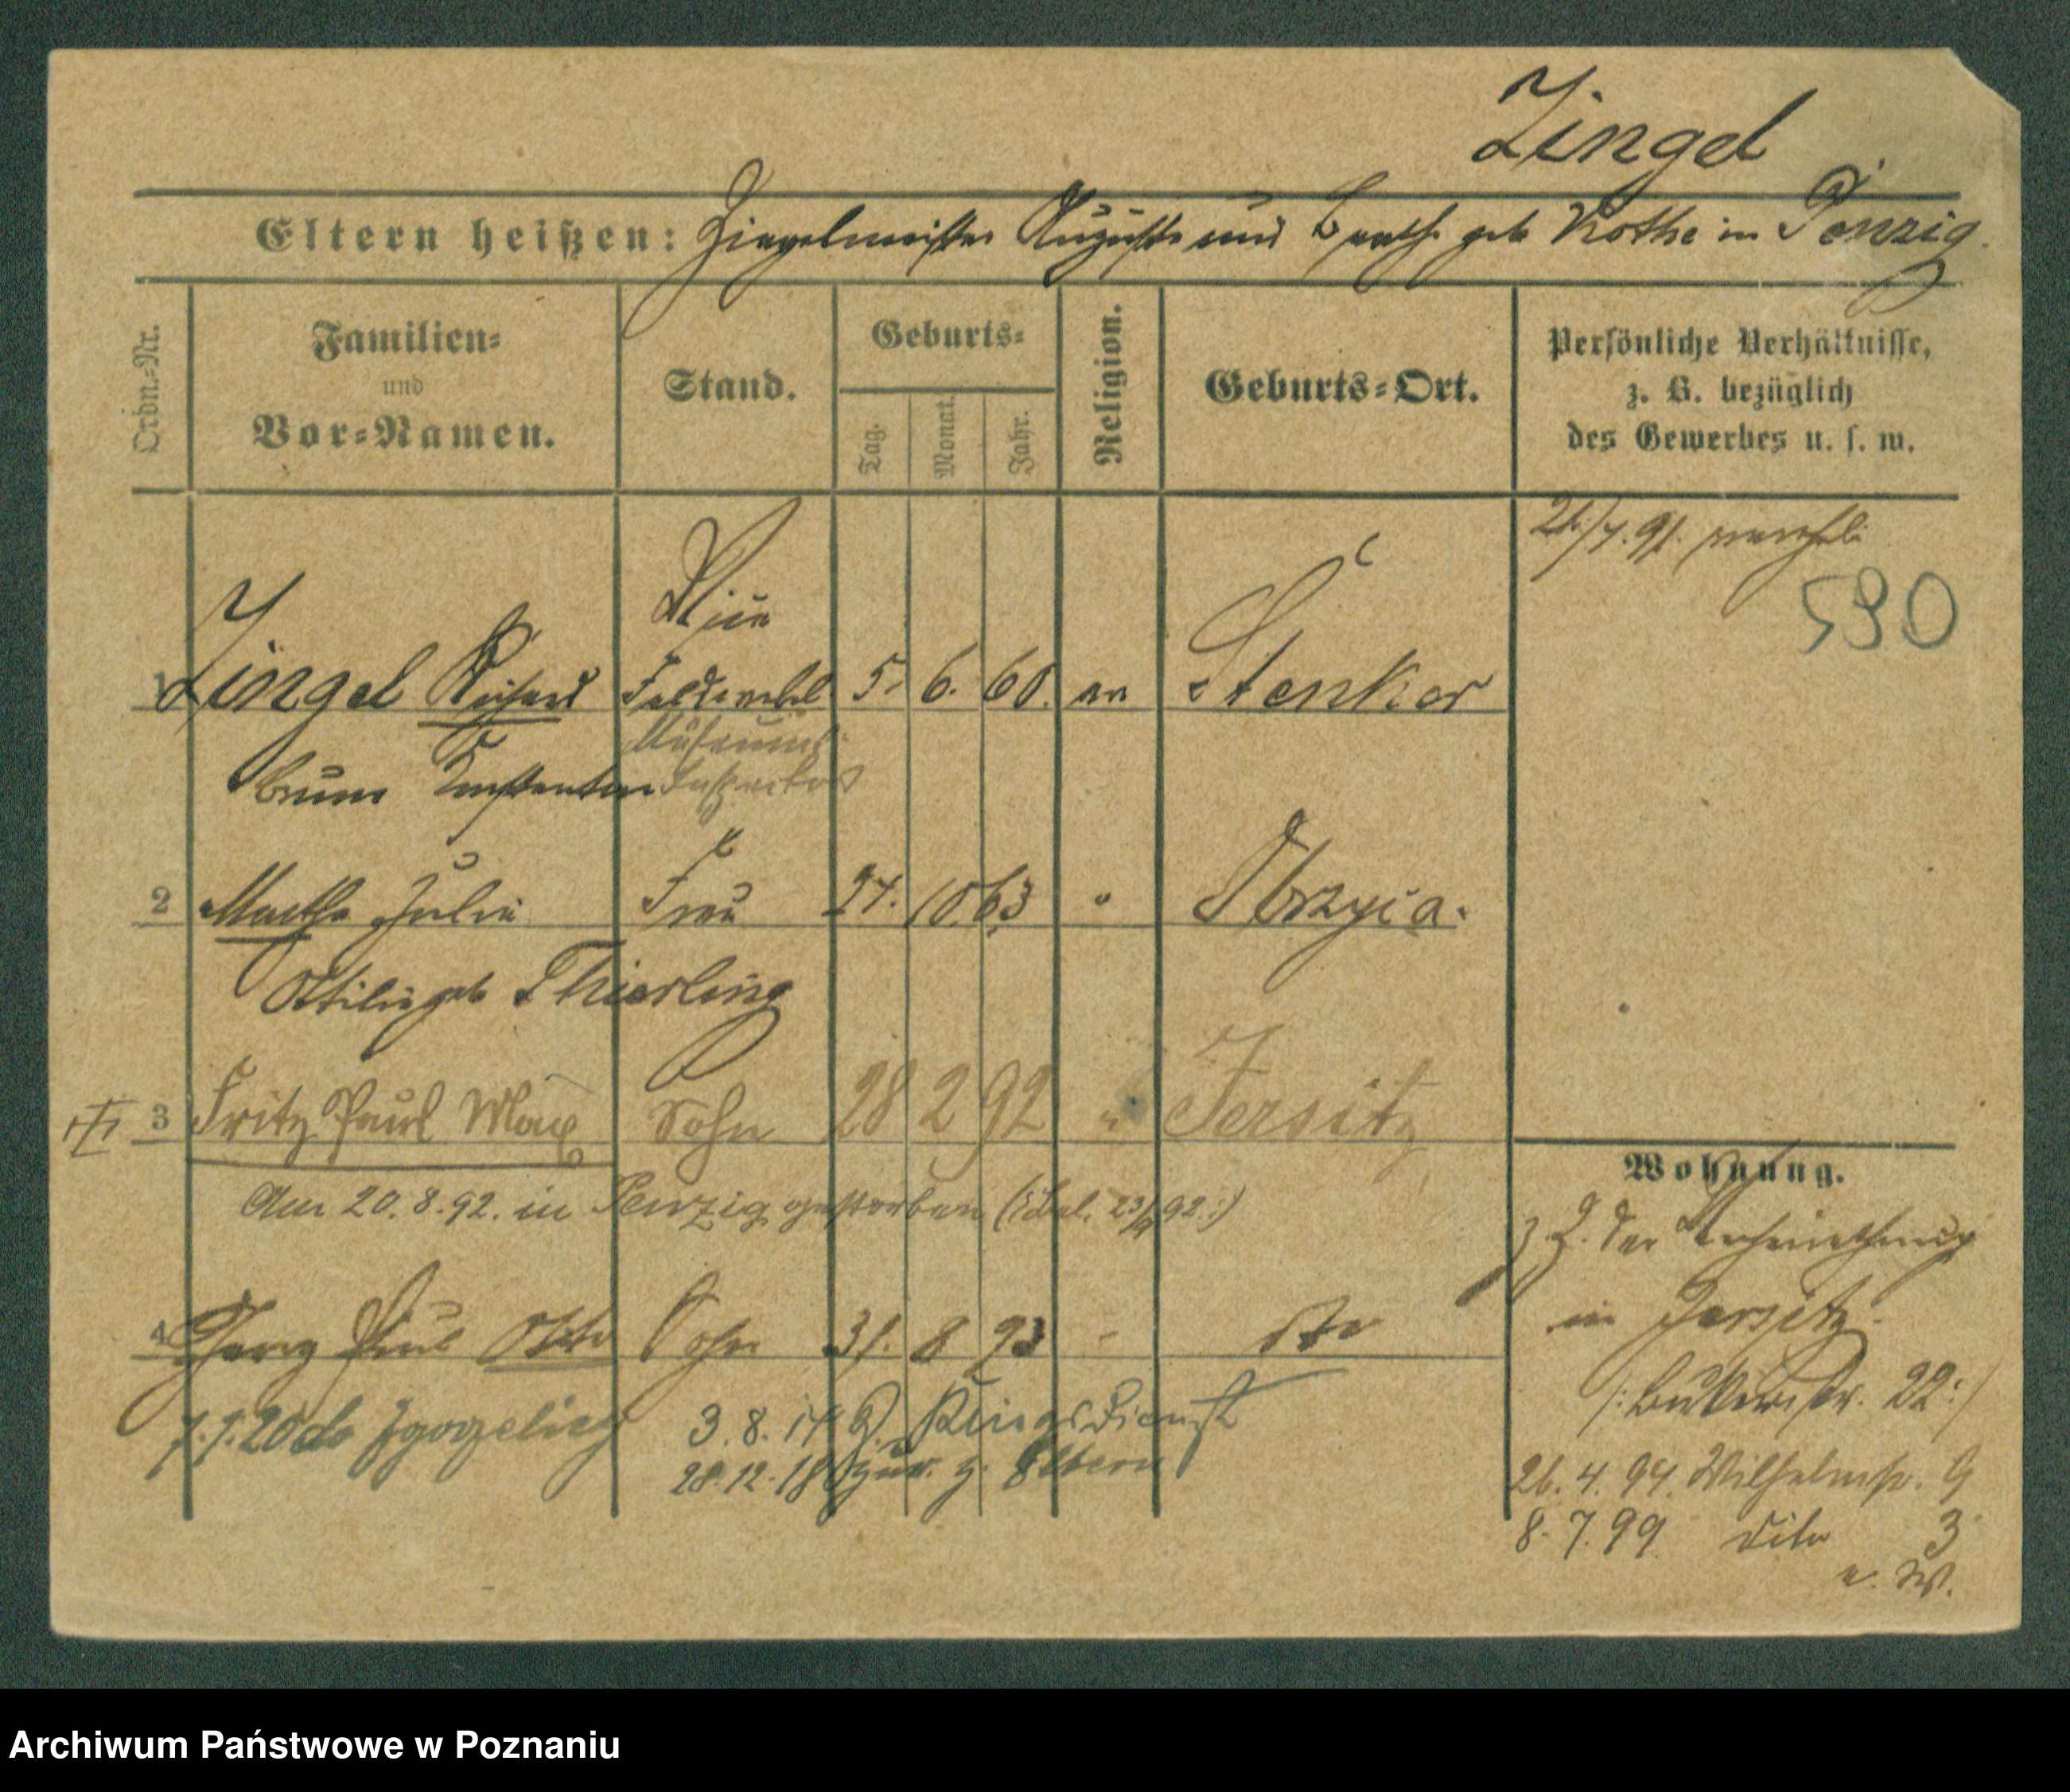 Zingel
Eltern heißen: Ziegelmeister Auguste und geb Rothe in Penzig.
Ordn.-Nr.
Familien-
und
Vor-Namen.
Stand.
Geburts-
Tag.
Monat.
Jahr.
Religion.
Geburts-Ort.
Persönliche Verhältnisse,
z. B. bezüglich
des Gewerbes u. s. w.
21./7. 91. verehel.
590
1 Zingel Richard Feldwebel 5. 6. 60. ev Stenker
Bruno Konstantin
2 Martha Julie Frau 27. 10. 63 "
Ottilie geb Thierling
3 Fritz Paul Max Sohn 28 2 92 " Jersitz
Am 20. 8. 92. in Penzig gestorben (: Bel. 23/9 92 :)
4 Georg Paul Otto Sohn 31. 8 93 - dto
7. 1. 20 do Zgorzelice
3. 8. 14 z. Kriegsdienst
28. 12. 18 zur. z. Eltern
Wohnung.
z. Z. der Verheirathung
in Jersitz.
/: Bukerstr. 22 :/
26. 4. 94. Wilhelmstr. 9
8. 7. 99 dito 3